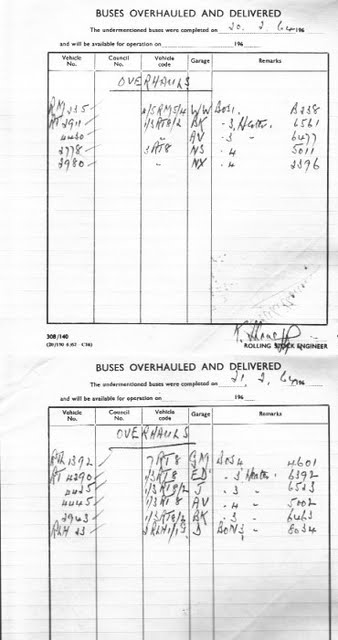 BUSES OVERHAULED AND DELIVERED
The undermentioned buses were completed on 20. 2. 64 196
and will be available for operation on 196
Vehicle No. Council No. Vehicle code Garage Remarks
OVERHAULS
RM 235 WW BOS1. B238
RT 2911 1/3RT8/2 BK - 3, Heater. 6561
4460 " AV - 3 " 6477
2778 3RT8 NS - 4 5011
2980 " NX - 4 2396
308/140
ROLLING STOCK ENGINEER
BUSES OVERHAULED AND DELIVERED
The undermentioned buses were completed on 21. 2. 64 196
and will be available for operation on 196
Vehicle No. Council No. Vehicle code Garage Remarks
OVERHAULS
1392 7RT8 GM BOS4 4601
RT 4290 1/3RT8 ED - 3 Heater 6392
4425 1/3RT8/2 J - 3 " 6523
4445 1/3RT8 AV - 4 " 5002
2943 1/3RT8/2 BK - 3 " 6463
RLH 23 2RLH1/1 D BON3 - 8034